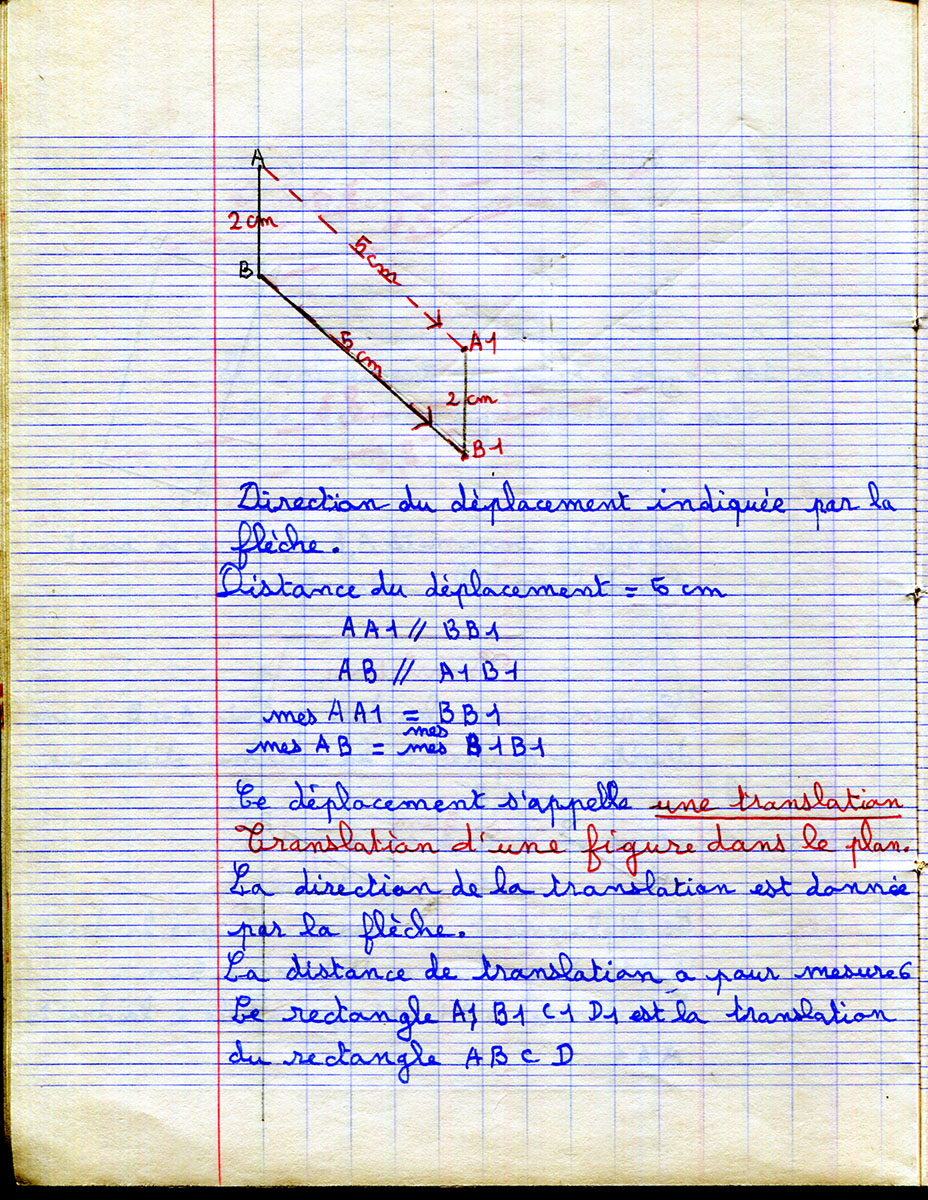 A
2 cm
5 cm
B
5 cm
A1
2 cm
B1
Direction du déplacement indiquée par la
flèche.
Distance du déplacement = 5 cm
AA1 // BB1
AB // A1B1
mes AA1 = BB1
mes
mes AB = mes B1B1
Ce déplacement s'appelle une translation
Translation d'une figure dans le plan.
La direction de la translation est donnée
par la flèche.
La distance de translation a pour mesure 6
Le rectangle A1 B1 C1 D1 est la translation
du rectangle A B C D